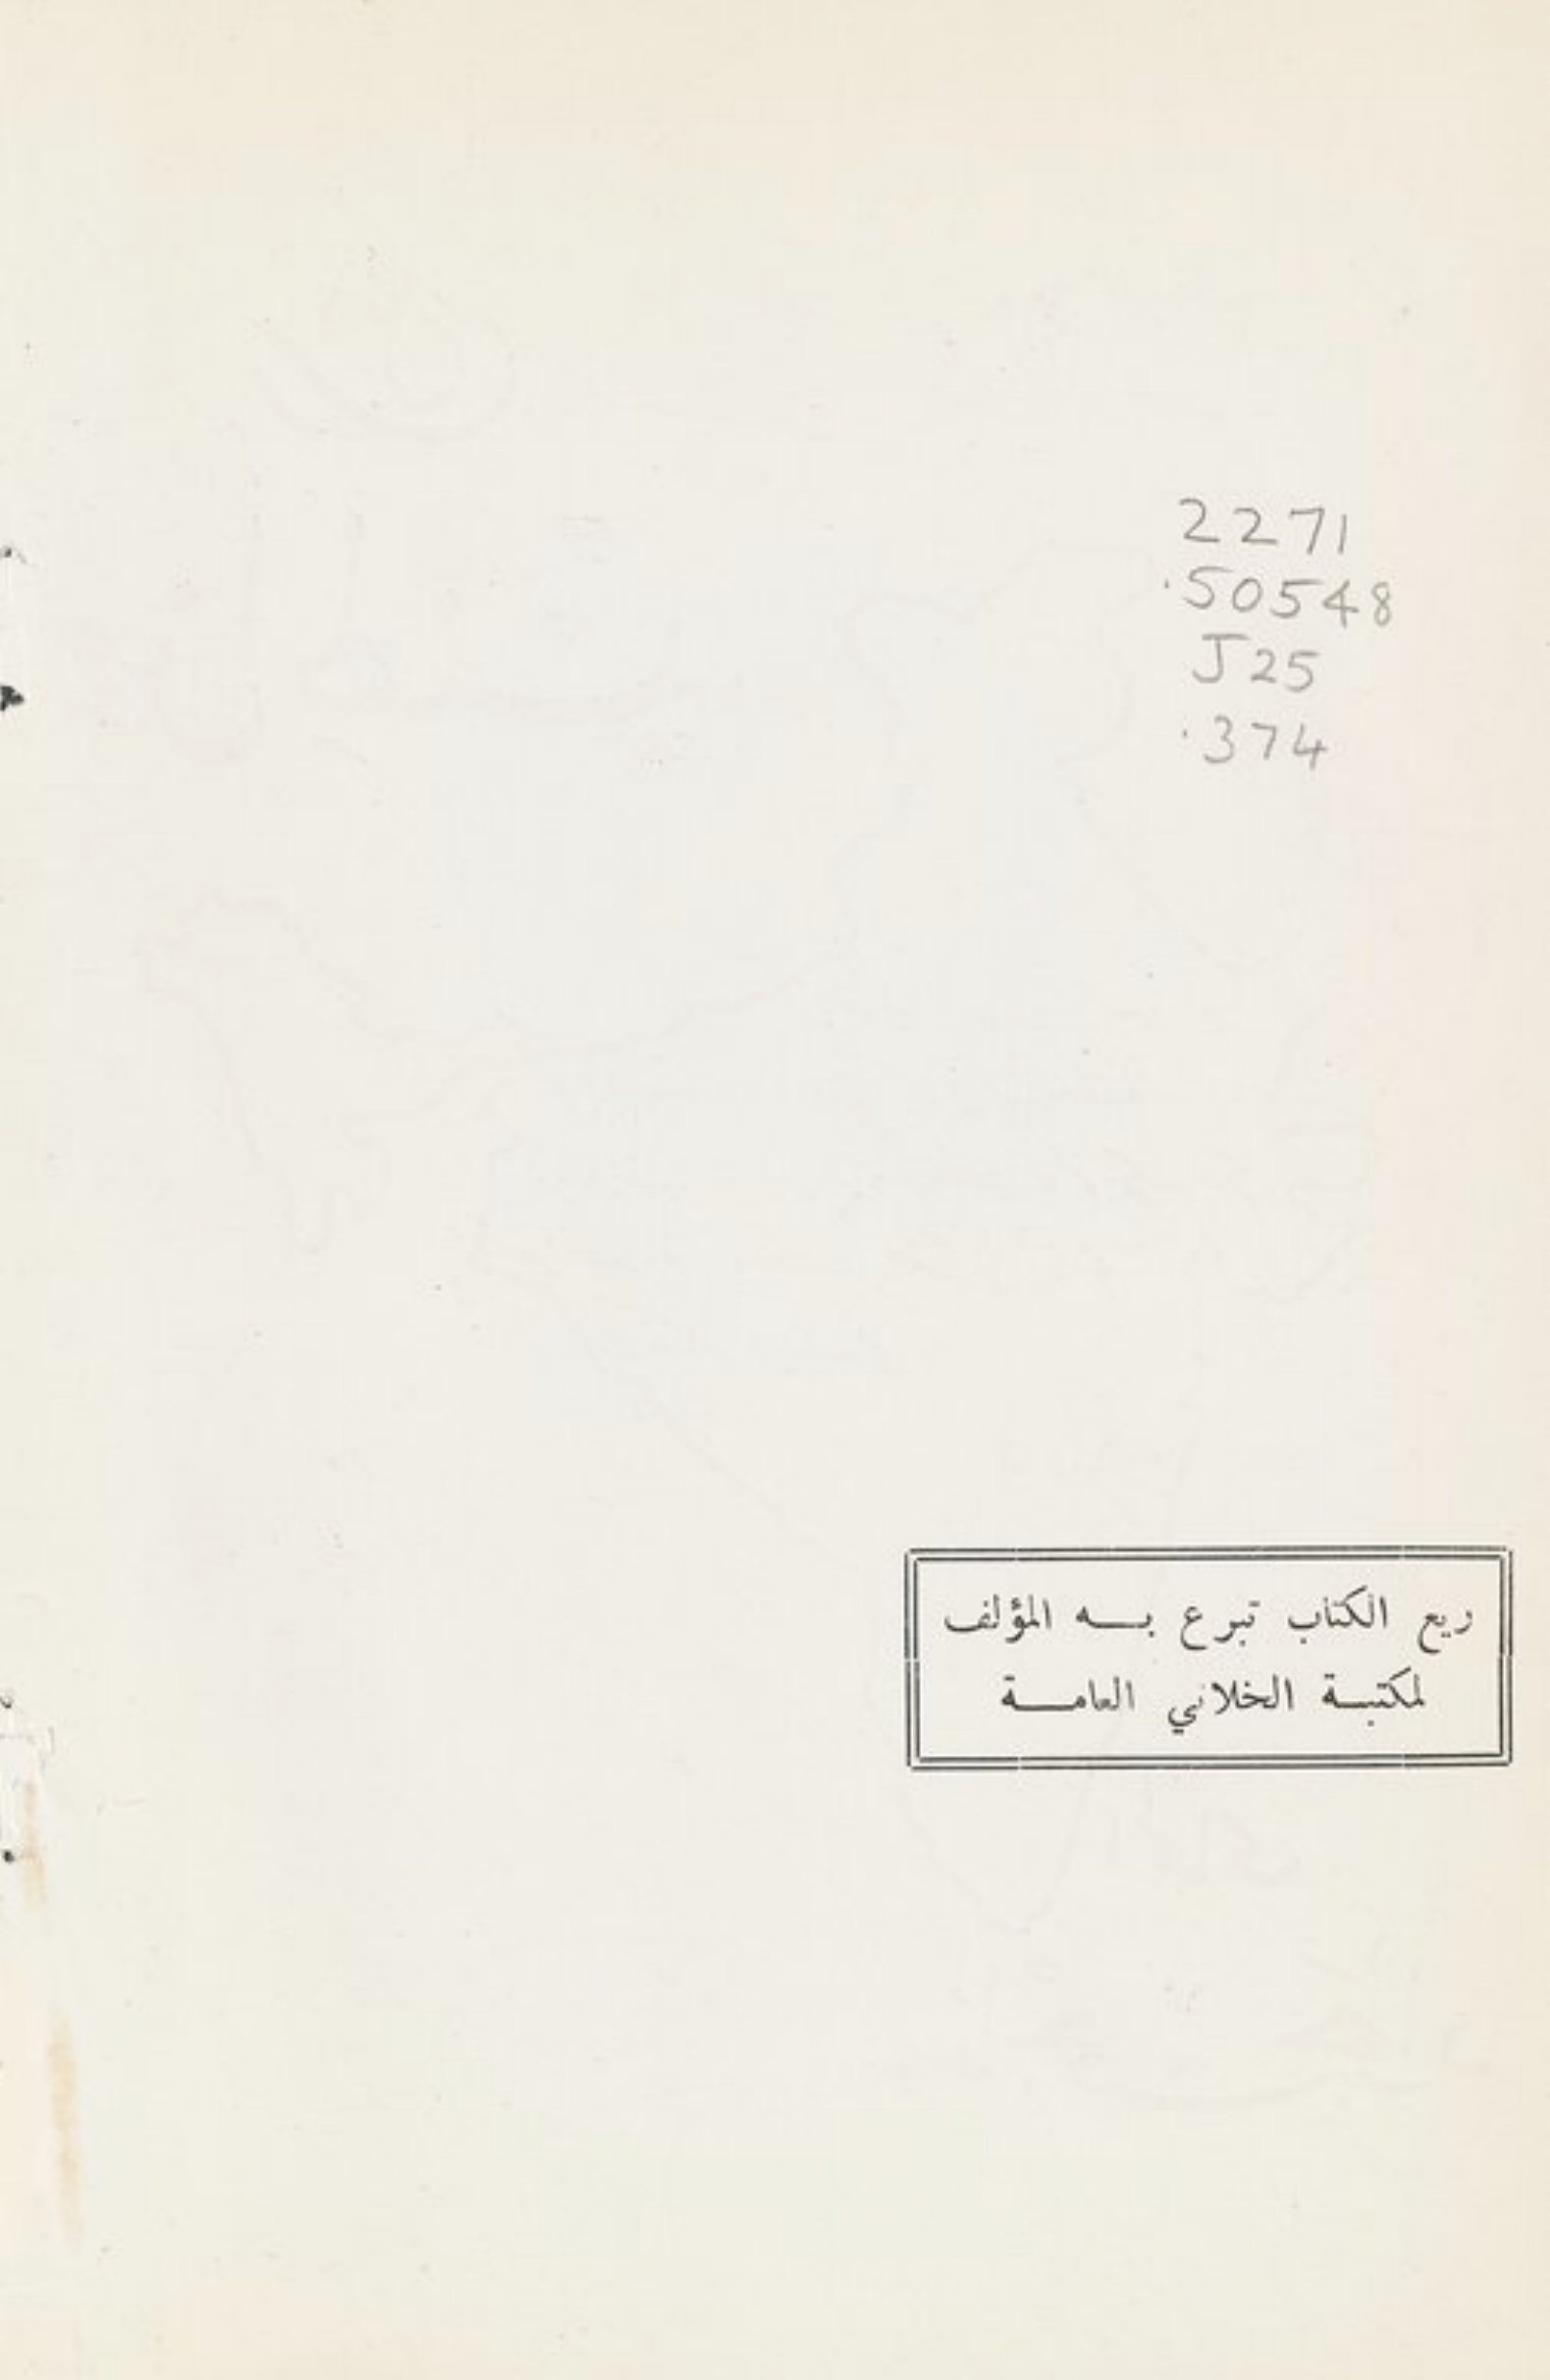 2271
.50548
J25
.374
ريع الكتاب تبرع بــه المؤلف
لمكتبــة الخلاني العامــة